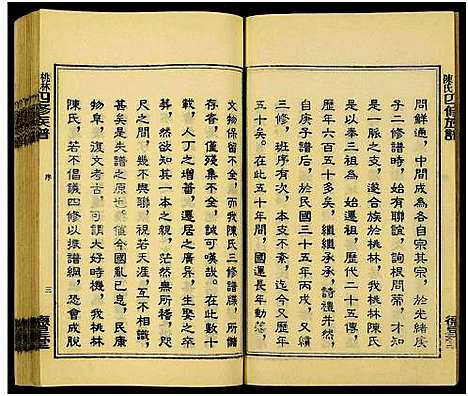 陳氏四修族譜
問鮮通，中間成為各自宗其宗，於光緒庚
子二修譜時，始有聯誼，詢根問蒂，才知
是一脈之支，遂合族於桃林，我桃林陳氏
以奉三祖為一始遷祖，歷代二十五傳，
歷年六百五十有奇，繼繼承承，詩禮井然，
自庚子譜后，於民國三十五年丙戌，又續
三修，班序有次，本支不紊，迄今又歷年
五十矣。在此五十年間，國運長年動蕩，
文物保留不全，而我陳氏三修譜牒，所
存者，僅殘集不全，誠可嘆說。在此數十
年之人丁之增蕃，遷居之廣舁，生娶之卒
葬，然欲知其一本之親，茫然無所稽，咫
尺之間，幾不與聯，視若天涯，互不關痛
甚矣是失譜之原也。懂今國亂已息，民康
物阜，復文考古，可謂大好時機，我桃林
陳氏，若不倡議四修以振譜綱，恐會成脫
桃林四修族譜
序
三